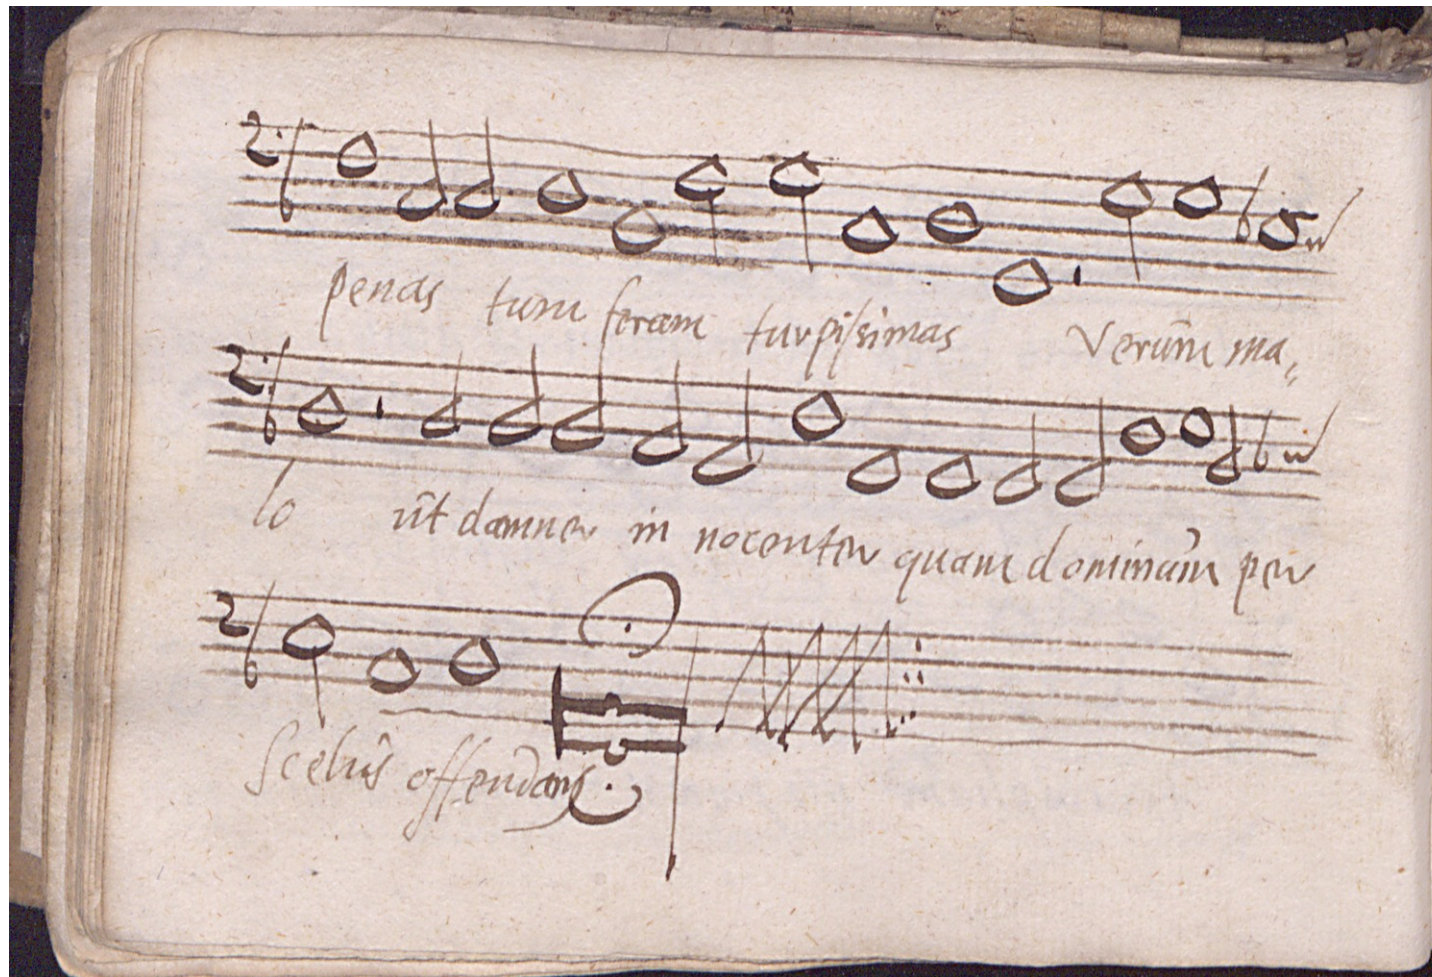 penas tum feram turpissimas Verum̃ ma„
lo ut̃ damner in nocenter quam dominum̃ per
Scelus̃ offendam